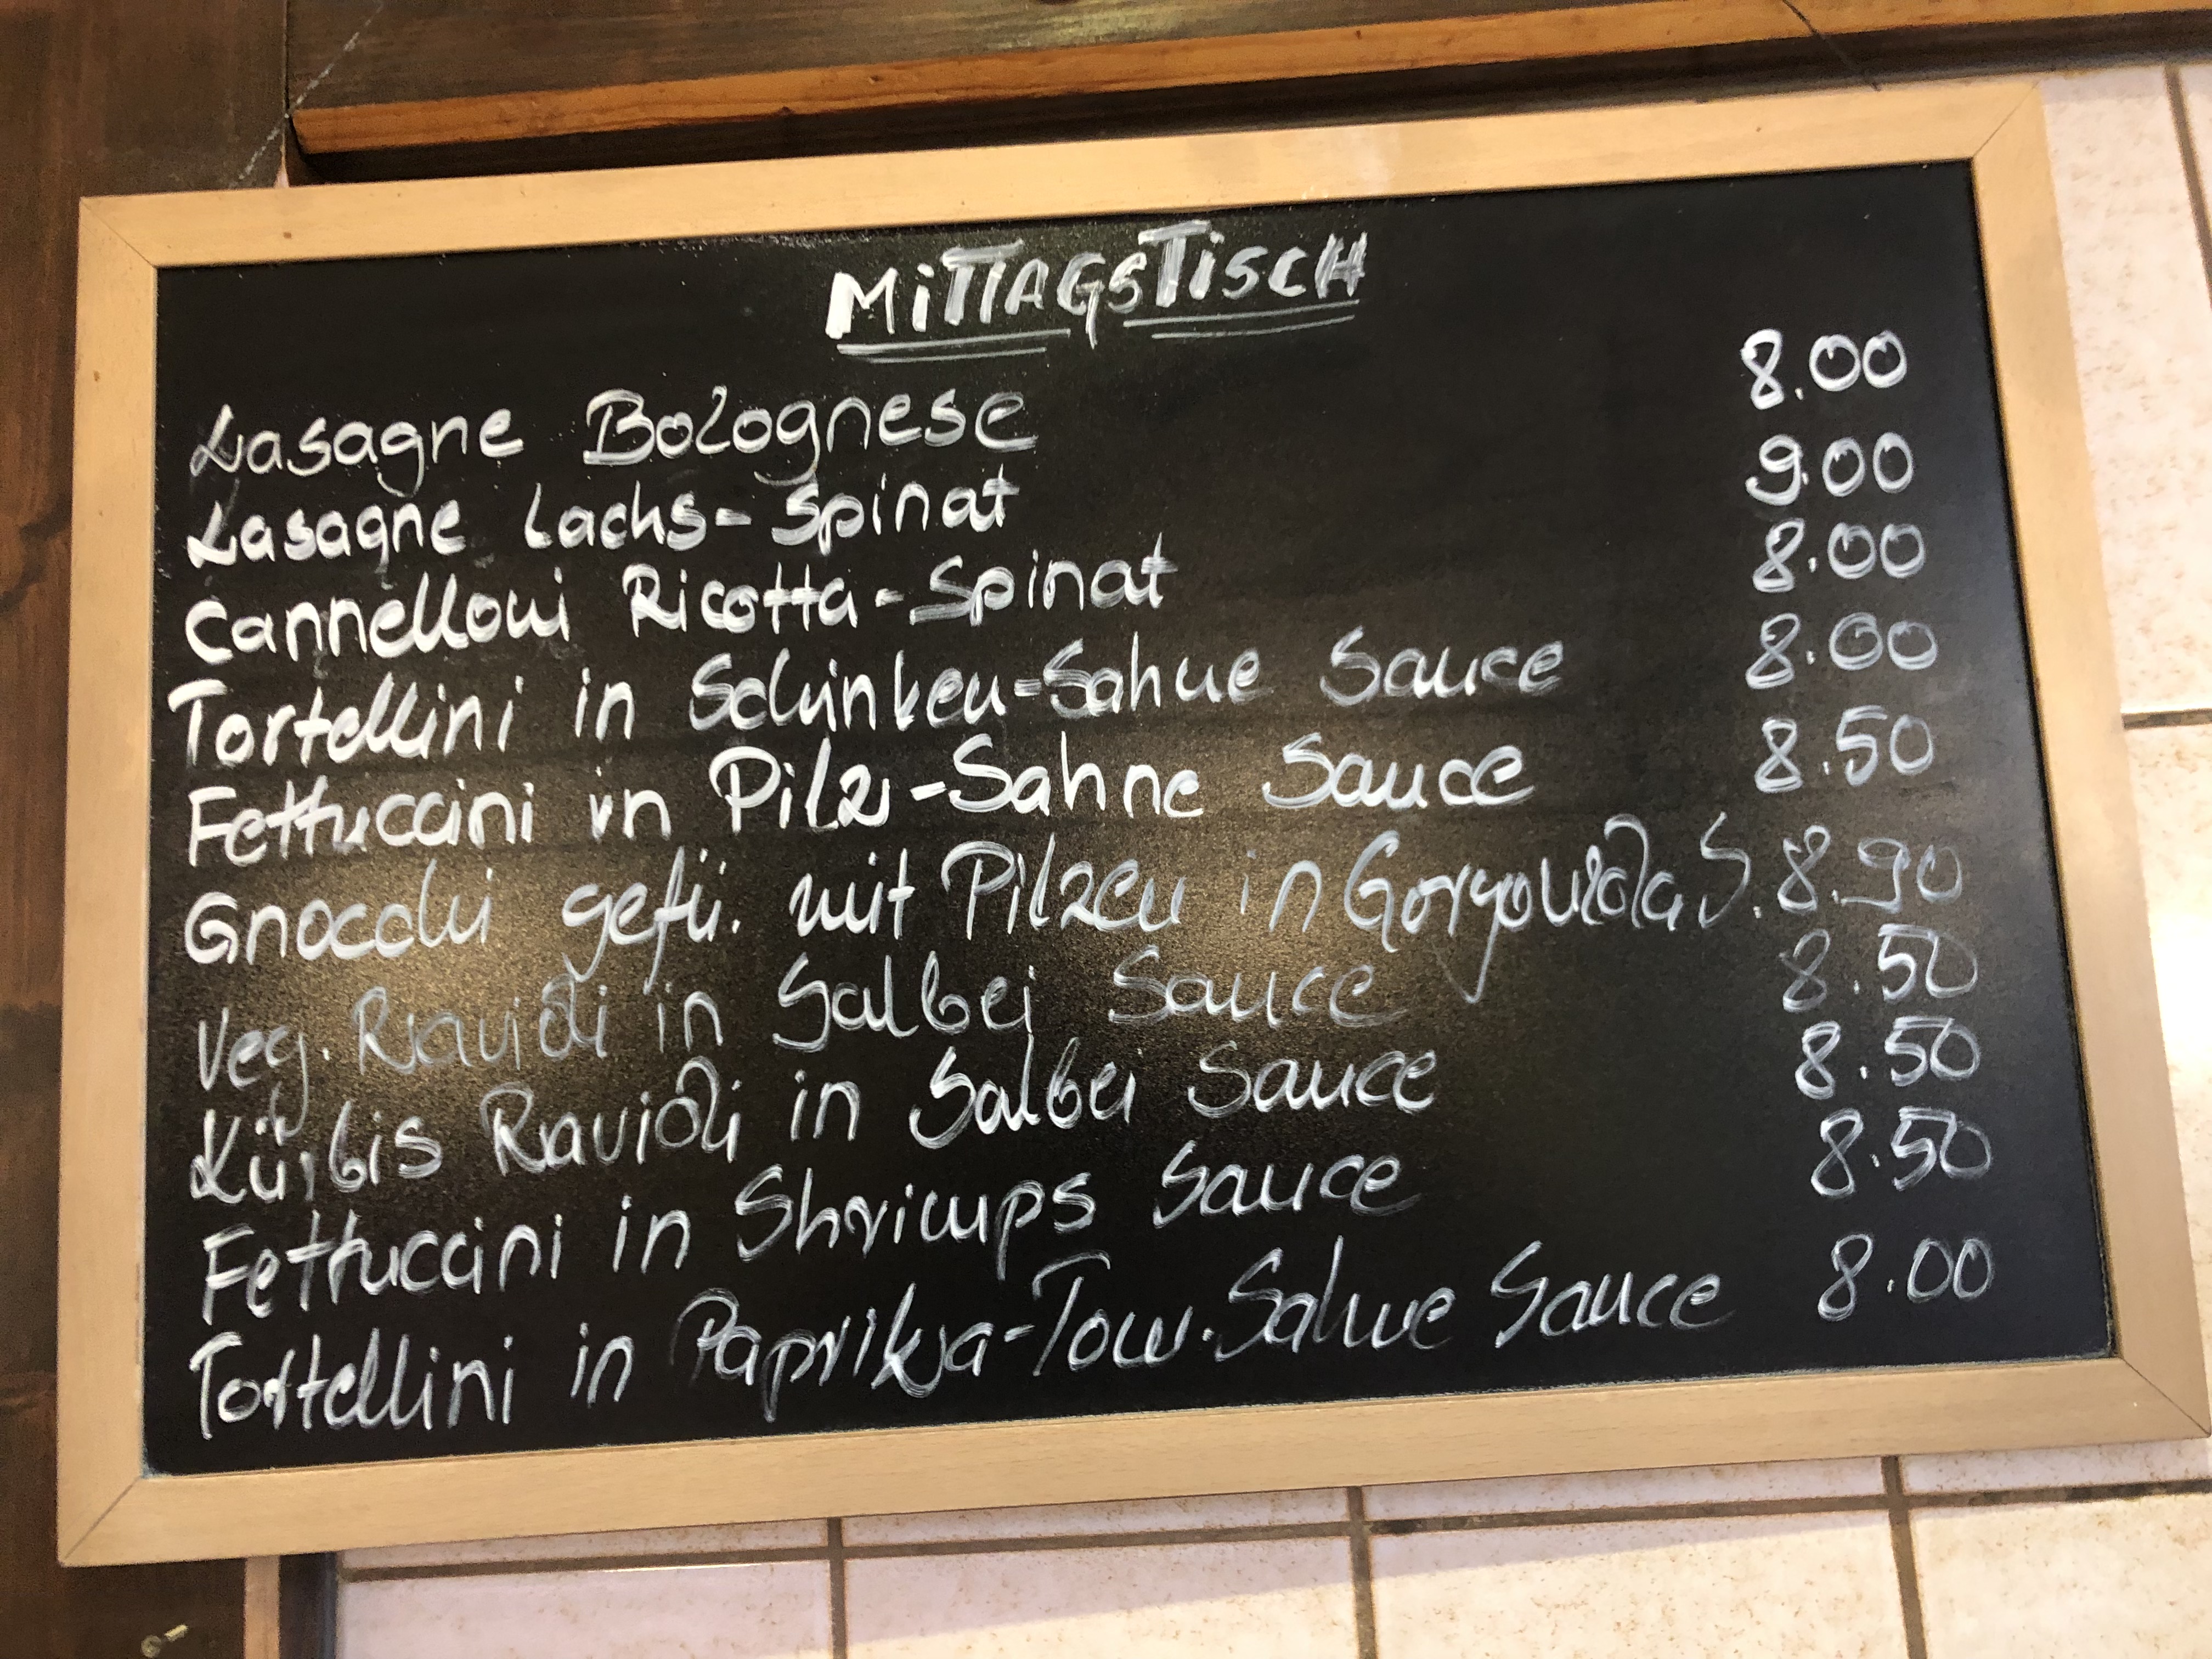 MiTTAGSTiSCH
Lasagne Bolognese 8.00
Lasagne Lachs-Spinat 9.00
Cannelloni Ricotta-Spinat 8.00
Tortellini in Schinken-Sahne Sauce 8.00
Fettuccini in Pilz-Sahne Sauce 8.50
Gnocchi gefü. mit Pilzen in Gorgonzola S. 8.90
Veg. Ravioli in Salbei Sauce 8.50
Kürbis Ravioli in Salbei Sauce 8.50
Fettuccini in Shrimps Sauce 8.50
Tortellini in Paprika-Tom.Sahne Sauce 8.00